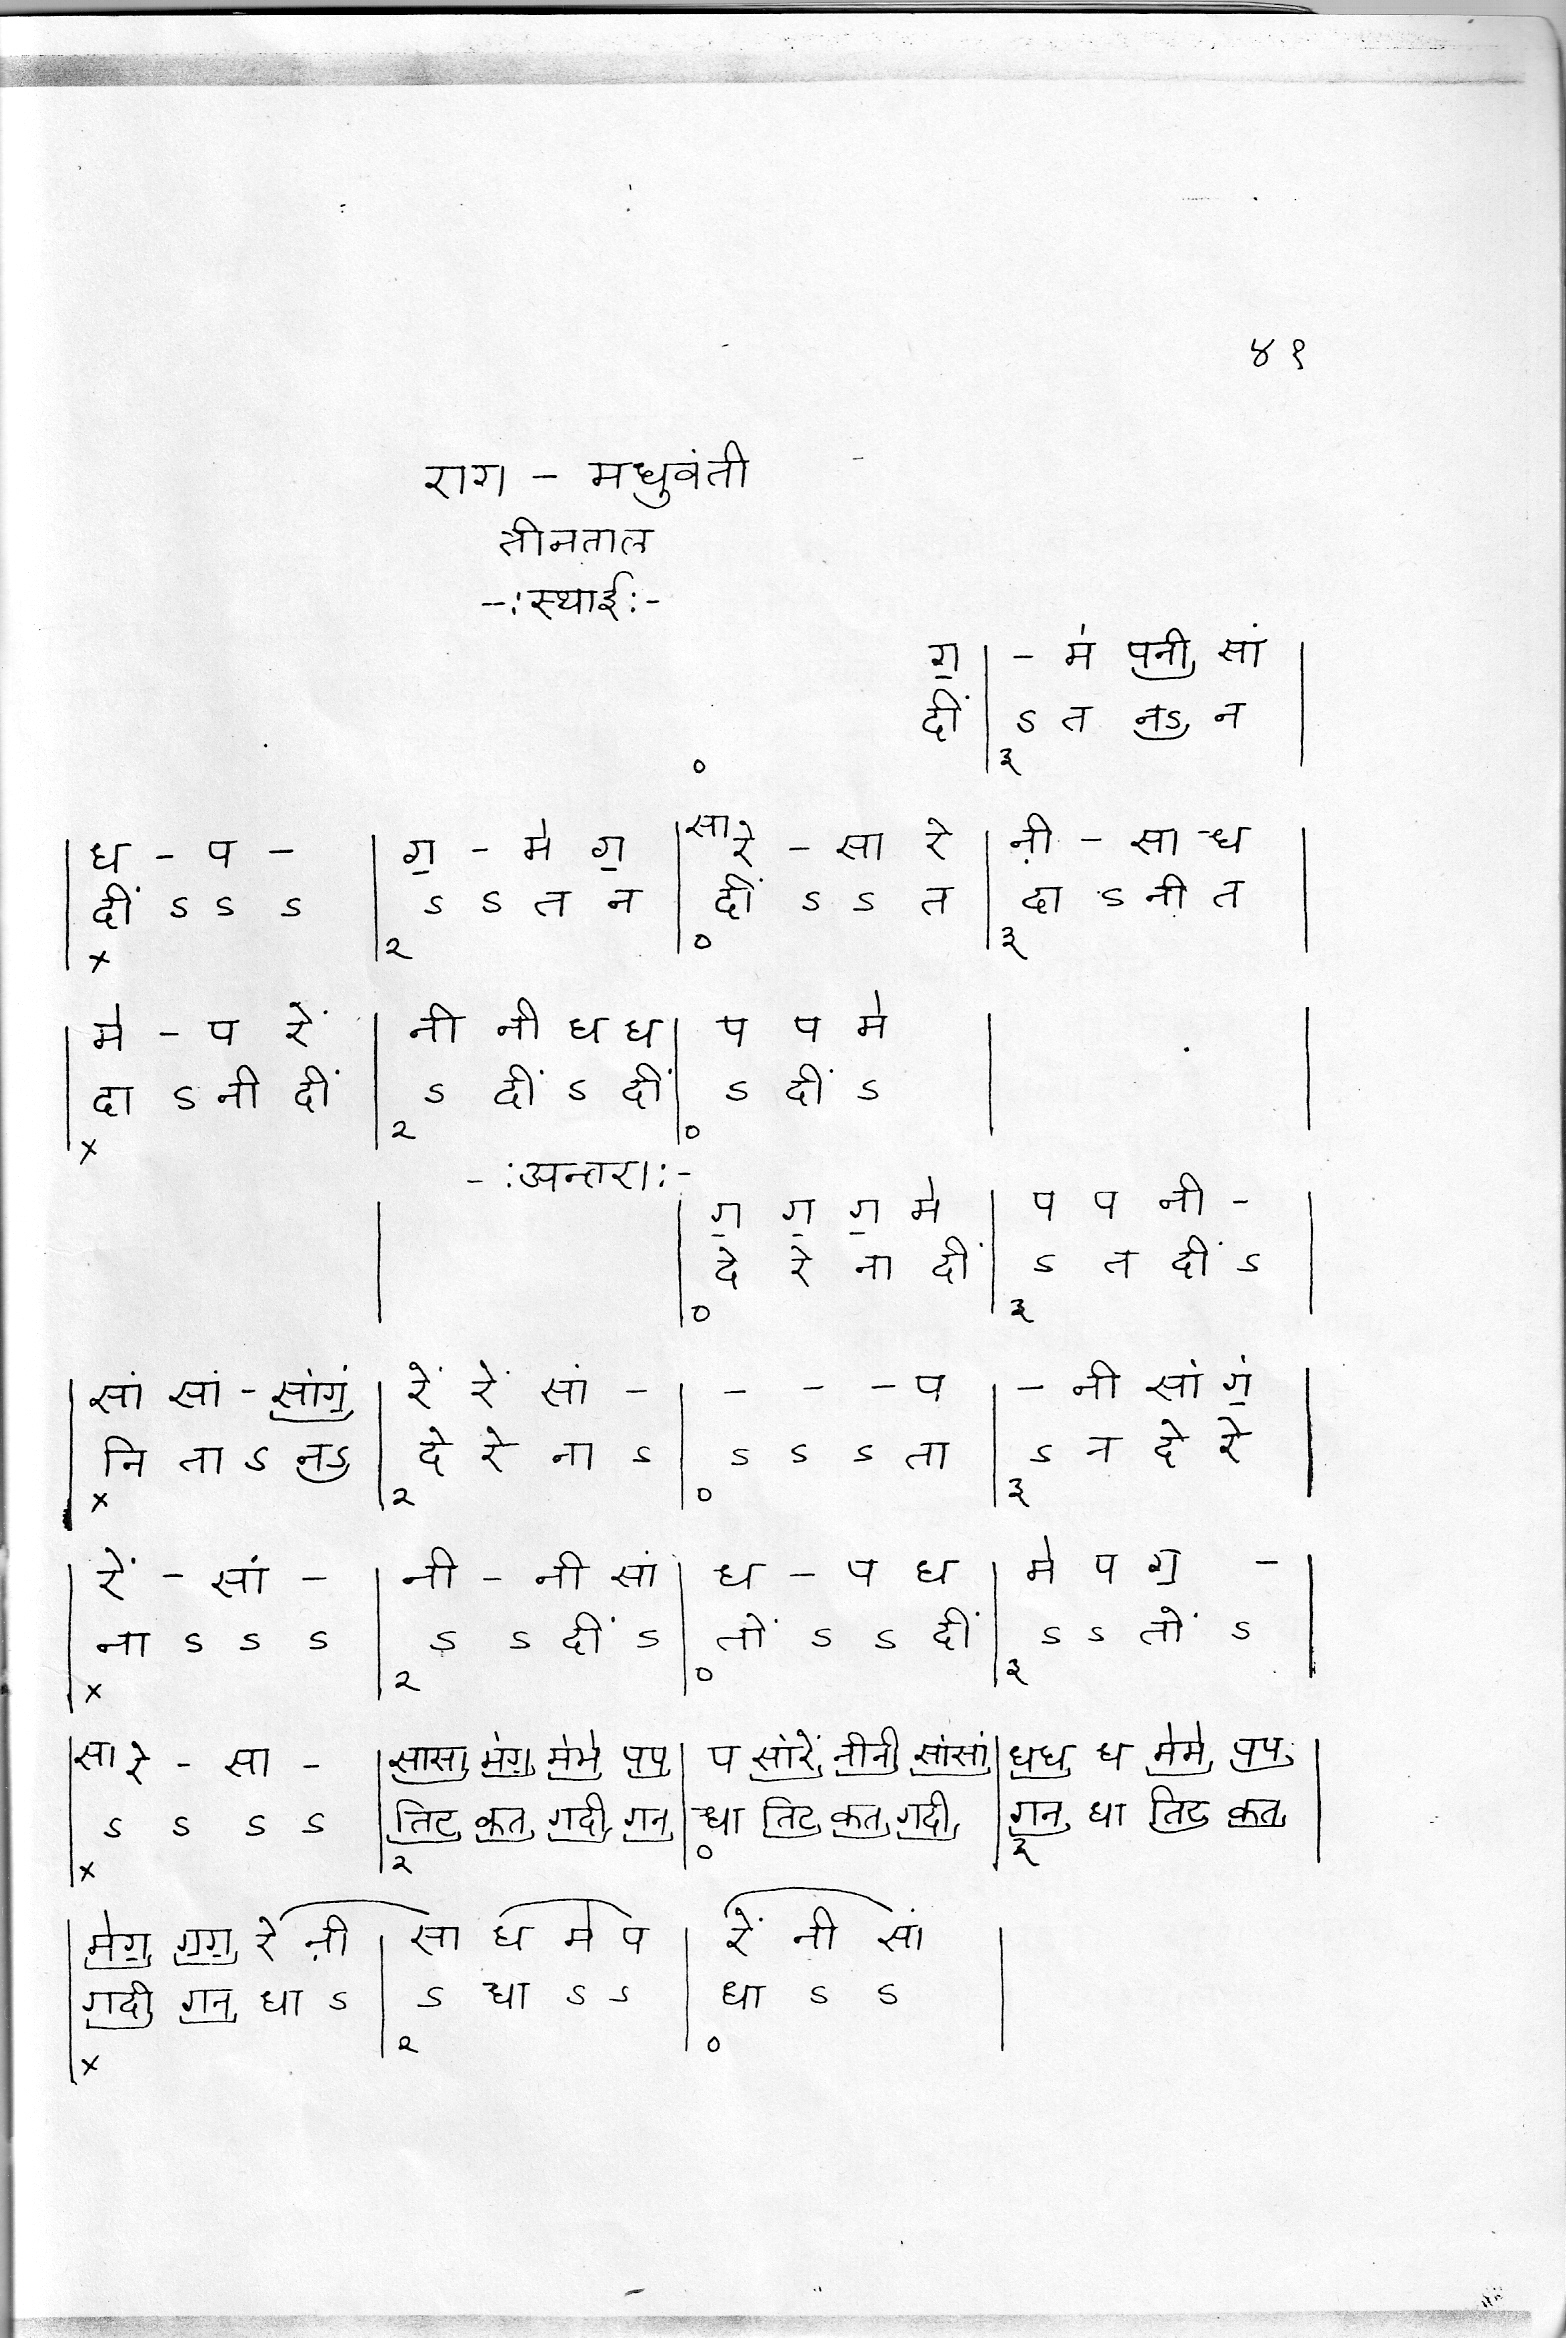 ४१
राग - मधुवंती
तीनताल
-:स्थाई:-
ग॒ | - म॑ पनी सां |
दीं | ऽ त नऽ न |
० ३
| ध - प - | ग॒ - म॑ ग॒ | सारे - सा रे | ऩी - सा ध |
| दीं ऽ ऽ ऽ | ऽ ऽ त न | दीं ऽ ऽ त | दा ऽ नी त |
x २ ० ३
| म॑ - प रें | नी नी ध ध | प प म॑ | |
| दा ऽ नी दीं | ऽ दीं ऽ दीं | ऽ दीं ऽ | |
x २ ०
-:अन्तरा:-
| | ग॒ ग॒ ग॒ म॑ | प प नी - |
| | दे रे ना दीं | ऽ त दीं ऽ |
० ३
| सां सां - सांगं॒ | रें रें सां - | - - - प | - नी सां गं॒ |
| नि ता ऽ नऽ | दे रे ना ऽ | ऽ ऽ ऽ ता | ऽ न दे रे |
x २ ० ३
| रें - सां - | नी - नी सां | ध - प ध | म॑ प ग॒ - |
| ना ऽ ऽ ऽ | ऽ ऽ दीं ऽ | तों ऽ ऽ दीं | ऽ ऽ तों ऽ |
x २ ० ३
| सारे - सा - | सासा म॑ग॒ म॑म॑ पप | प सांरें नीनी सांसां | धध ध म॑म॑ पप |
| ऽ ऽ ऽ ऽ | तिट कत गदी गन | धा तिट कत गदी | गन धा तिट कत |
x २ ० ३
| म॑ग॒ ग॒ग॒ रे ऩी | सा ध म॑ प | रें नी सां |
| गदी गन धा ऽ | ऽ धा ऽ ऽ | धा ऽ ऽ |
x २ ०